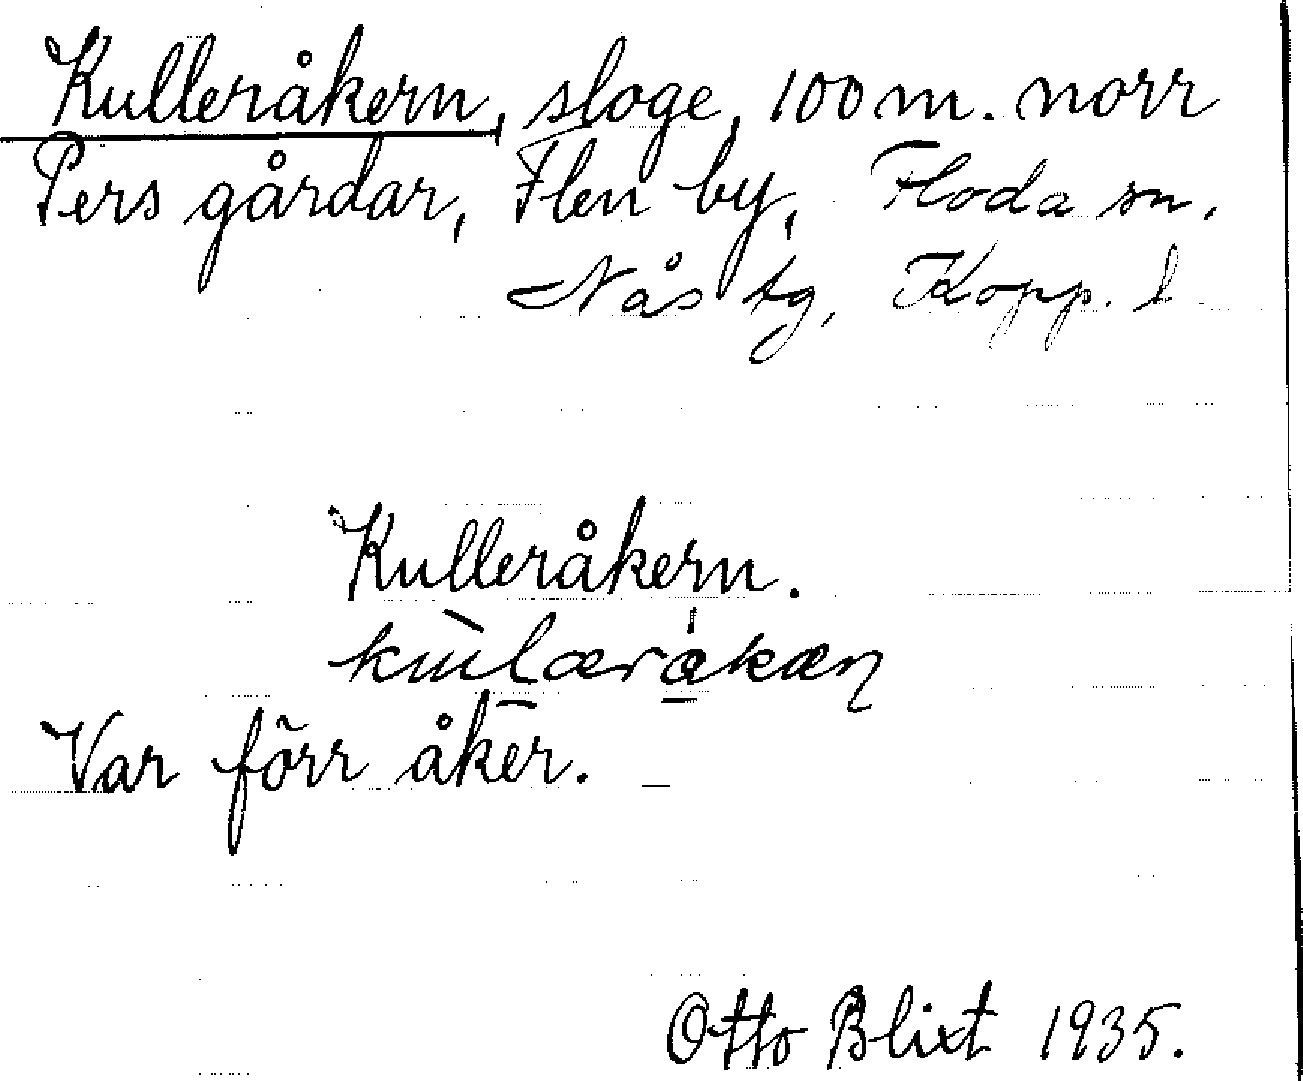 Kulleråkern, sloge, 100 m. norr
Pers gårdar, Flen by, Floda sn.
Nås tg, Kopp. l
Kulleråkern.
Var förr åker.
Otto Blixt 1935.